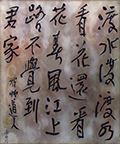 渡水復渡水
看花還看
花春風江上
路不覺到
君家